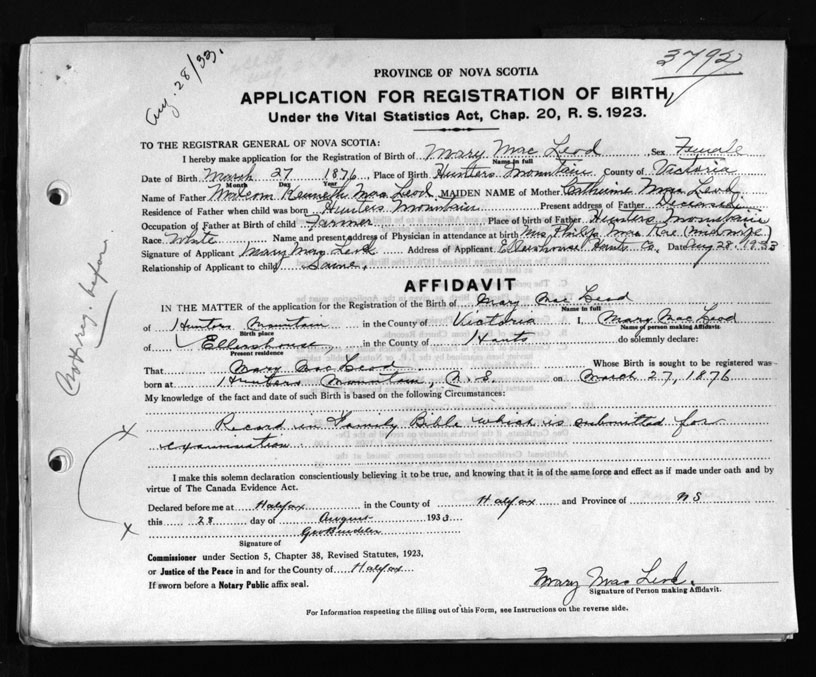 Aug. 28/33.
3792
PROVINCE OF NOVA SCOTIA
APPLICATION FOR REGISTRATION OF BIRTH
Under the Vital Statistics Act, Chap. 20, R. S. 1923.
TO THE REGISTRAR GENERAL OF NOVA SCOTIA:
I hereby make application for the Registration of Birth of Mary Mac Leod Sex Female
Name in full
Date of Birth March 27 1876 Place of Birth Hunters Mountain County of Victoria
Month Day Year
Name of Father Kenneth Mac Leod MAIDEN NAME of Mother Catherine Mac Leod
Residence of Father when child was born Hunters Mountain Present address of Father Deceased
Occupation of Father at Birth of child Farmer Place of birth of Father Hunters Mountain
Race White Name and present address of Physician in attendance at birth Mrs Philip Mac Rae (midwife)
Signature of Applicant Mary Mac Leod Address of Applicant Ellershouse Hants Co. Date Aug 28. 1933
Relationship of Applicant to child Same.
AFFIDAVIT
IN THE MATTER of the application for the Registration of the Birth of Mary Mac Leod
Name in full
of Hunters Mountain in the County of Victoria I, Mary Mac Leod
Birth place Name of person making Affidavit.
of Ellershouse, in the County of Hants do solemnly declare:
Present residence
Not reg. before
That Mary Mac Leod Whose Birth is sought to be registered was
born at Hunters Mountain, N.S. on March 27, 1876
My knowledge of the fact and date of such Birth is based on the following Circumstances:
x Record in Family Bible which is submitted for
examination
I make this solemn declaration conscientiously believing it to be true, and knowing that it is of the same force and effect as if made under oath and by
virtue of The Canada Evidence Act.
Declared before me at Halifax in the County of Halifax and Province of NS
this 28 day of August 1933
x
Signature of
Commissioner under Section 5, Chapter 38, Revised Statutes, 1923,
or Justice of the Peace in and for the County of Halifax
If sworn before a Notary Public affix seal.
Mary Mac Leod.
Signature of Person making Affidavit.
For Information respecting the filling out of this Form, see Instructions on the reverse side.